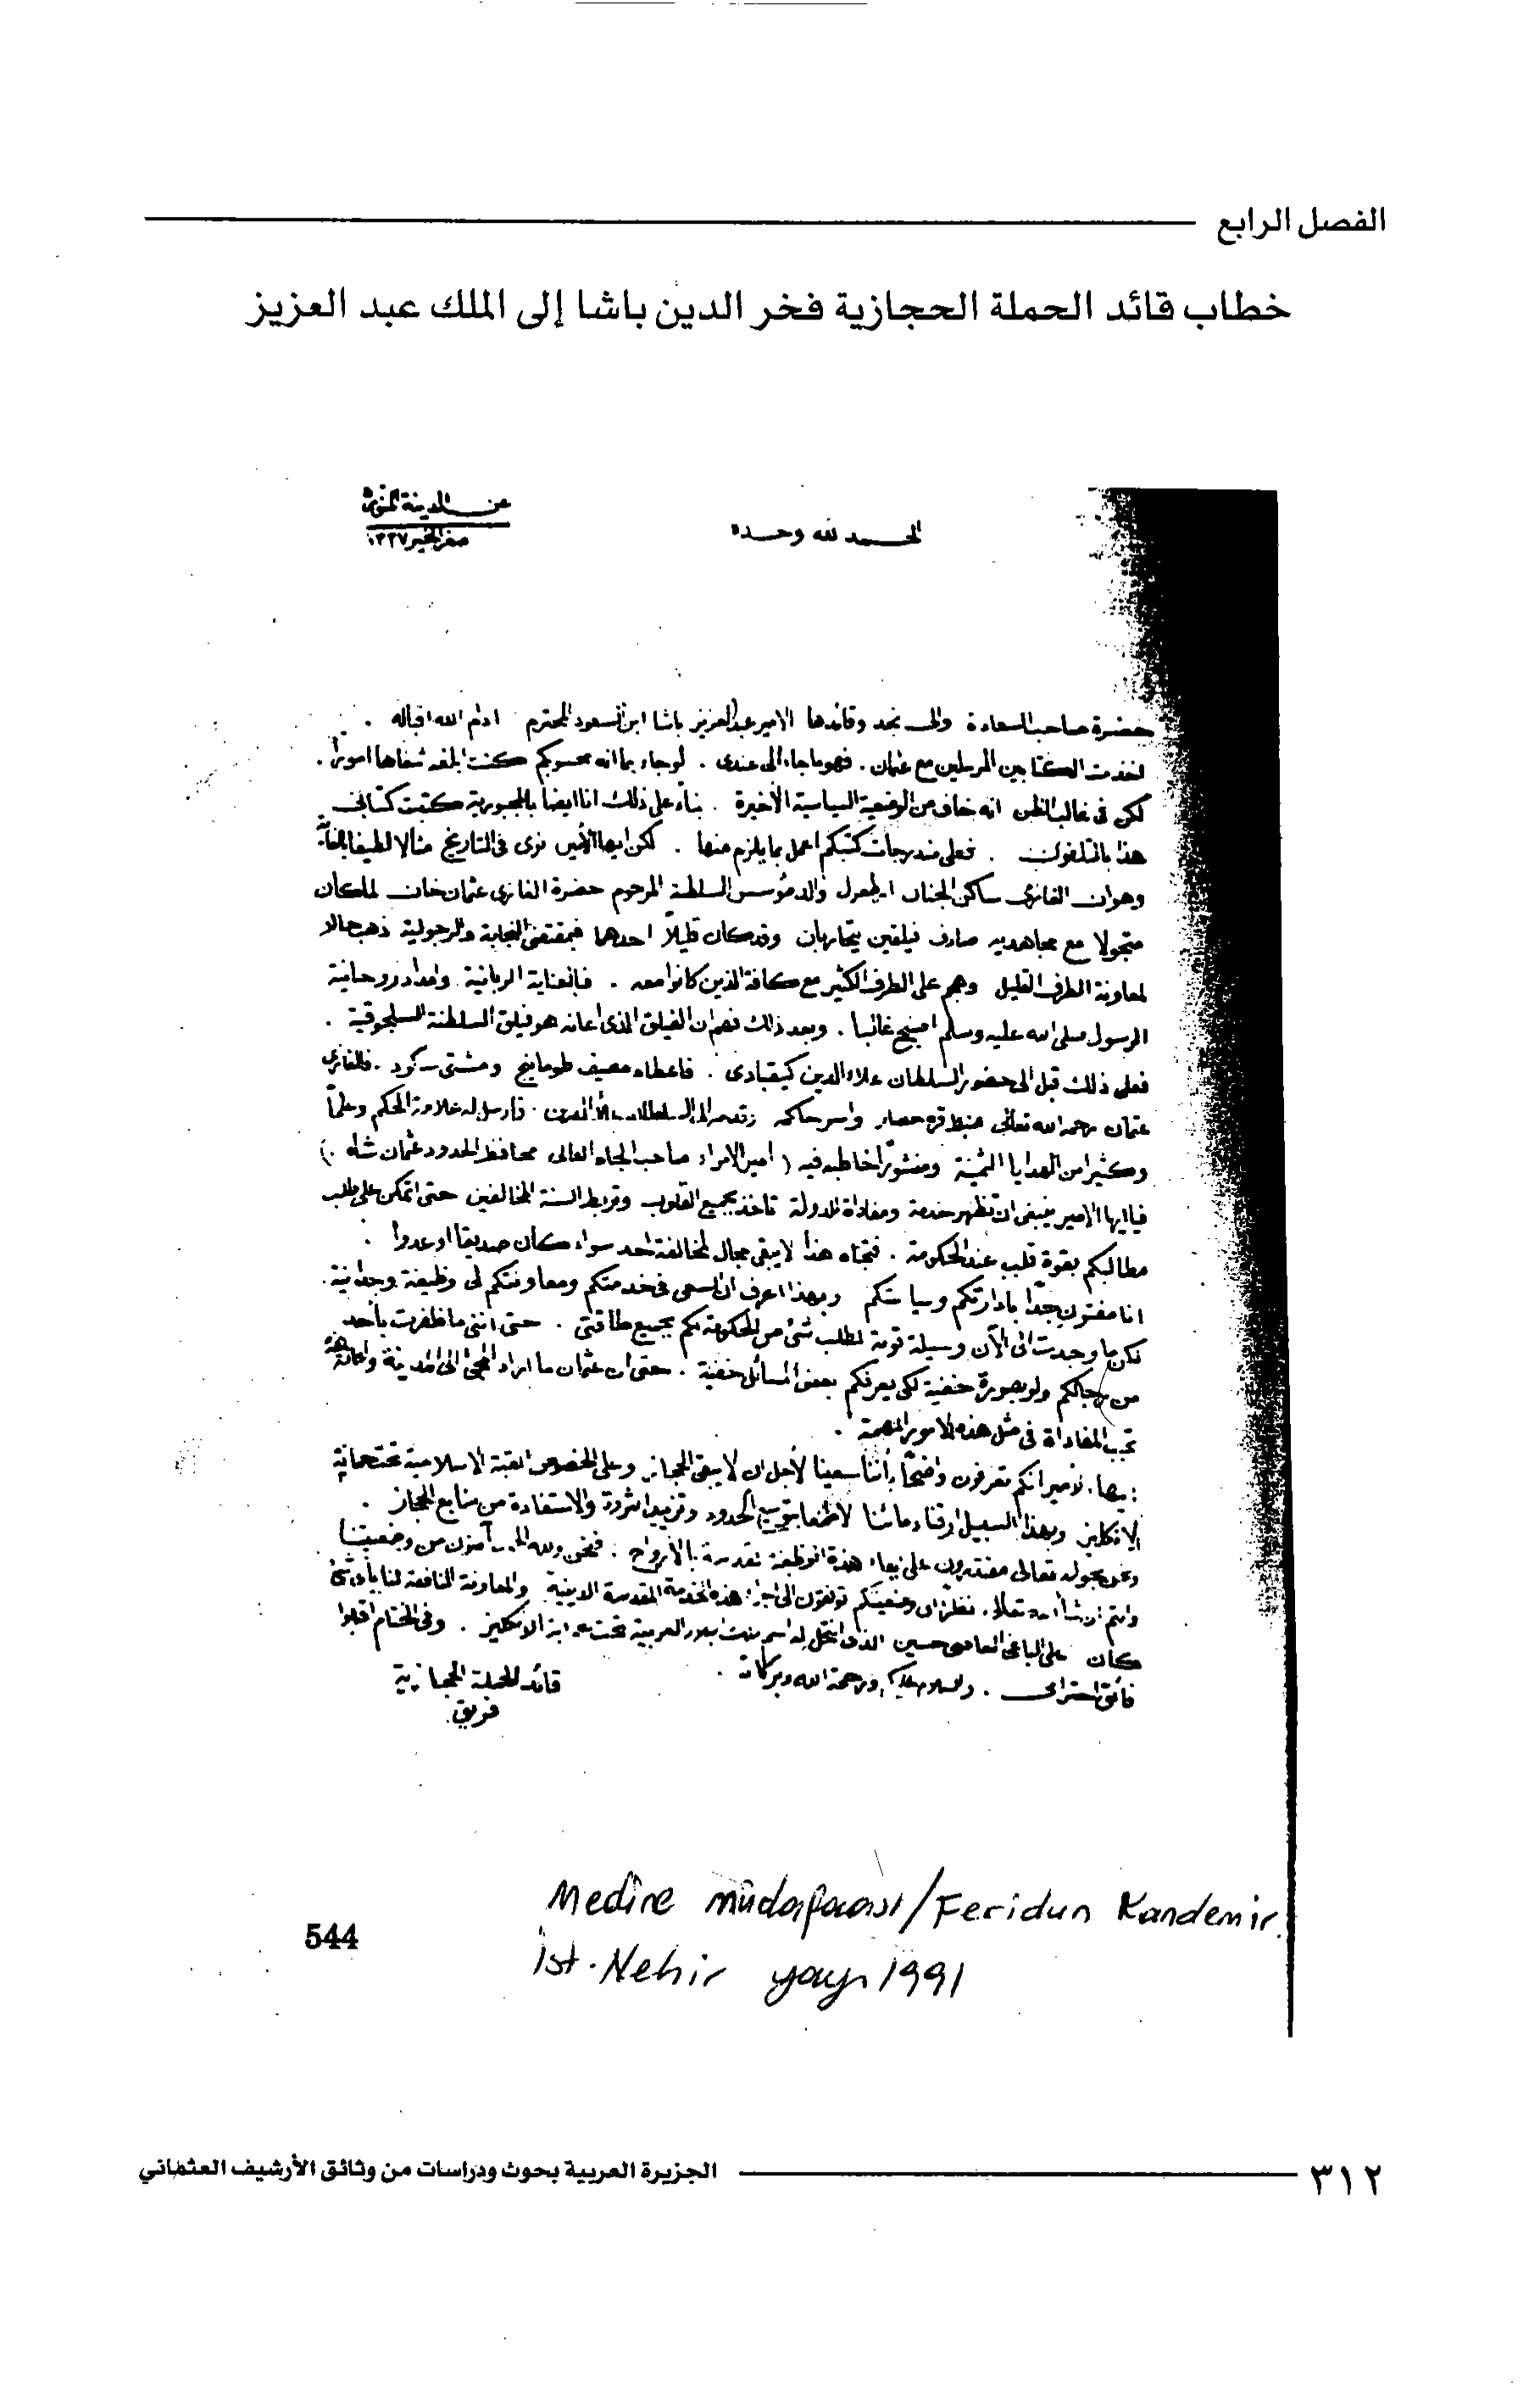 الفصل الرابع
خطاب قائد الحملة الحجازية فخر الدين باشا إلى الملك عبد العزيز
عن المدينة المنورة
صفر الخير ١٣٣٧
الحمد لله وحده
حضرة صاحب السعادة والى نجد وقائدها الامير عبد العزيز باشا ابن السعود المحترم ادام الله اقباله .
اخذت الكتابين المرسلين مع عثمان . فهو ما جاء الى عندى . لو جاء بما انه محسوبكم كنت ابلغه شفاها امورا .
لكن فى غالب الظن انه خاف من الوضعية السياسية الأخيرة . بناء على ذلك انا ايضا بالمجبورية كتبت كتابى
هذا بالتلفون . فعلى مندرجات كتبكم اعمل بما يلزم منها . لكن ايها الأمير نرى فى التاريخ مثالا لطيفا للغاية
وهو ان الغازى ساكن الجنان ارطغرل والد مؤسس السلطنة المرحوم حضرة الغازى عثمان خان لما كان
متجولا مع مجاهديه صادف فيلقين يتحاربان وقد كان قليلاً احدهما فبمقتضى النجابة والرجولية ذهب حالا
لمعاونة الطرف القليل وهجم على الطرف الكثير مع كافة الذين كانوا معه . فبالعناية الربانية وامداد روحانية
الرسول صلى الله عليه وسلم اصبح غالبا . وبعد ذلك فهم ان الفيلق الذى اعانه هو فيلق السلطنة السلجوقية .
فعلى ذلك قبل الى حضور السلطان علاء الدين كيقبادى . فاعطاه مصيف طومانيج ومشتى سكود . فالغازى
عثمان رحمه الله تعالى ضبط قره حصار واسر حاكمه وقدمه الى السلطان علاء الدين . فارسل له علامة الحكم وعلماً
وكثيرا من الهدايا الثمينة ومنشوراً خاطبه فيه ( امير الامراء صاحب الجاه العالى محافظ الحدود عثمان شاه . )
فيا ايها الامير ينبغى ان تظهر خدمة ومفاداة للدولة تاخذ بجميع القلوب وتربط السنة المخالفين حتى اتمكن على طلب
مطالبكم بقوة قلب عند الحكومة . فتجاه هذا لا يبقى مجال لمخالفة احد سواء كان صديقا او عدوا .
انا مفتون جدّا بادارتكم وسياستكم وبهذا اعرف ان السعى فى خدمتكم ومعاونتكم لى وظيفة وجدانية .
لكن ما وجدت الى الآن وسيلة قوية لطلب شئ من الحكومة لكم بجميع طاقتى . حتى اننى ما ظفرت بأحد
من رجالكم ولو بصورة خفية لكى يعرفكم بعض المسائل خفية . حتى ان عثمان ما اراد المجئ الى المدينة والحال هذه
تجب المفاداة فى مثل هذه الامور المهمة .
ايها الامير انكم تعرفون واضحاً بأننا سعينا لأجل ان لا يبقى الحجاز وعلى الخصوص القبة الاسلامية تحت حماية
الانكليز وبهذا السبيل ارقنا دمائنا لا طمعا بتوسيع الحدود وتزييد الثروة والاستفادة من منابع الحجاز .
ونحن بحوله تعالى مقتدرون على ايفاء هذه الوظيفة المقدسة بالأرواح . فنحن ولله الحمد آمنون من وضعيتنا
وانتم ان شاء الله تعالى نظرا الى وضعيتكم توفقون الى اجراء هذه الخدمة المقدسة الدينية والمعاونة النافعة لنا بأى شئ
كان على الباغى العاصى حسين الذى انتحل له اسم ملك البلاد العربية تحت حماية الانكليز . وفى الختام اقبلوا
فائق احترامى . والسلام عليكم ورحمة الله وبركاته .
قائد الحملة الحجازية
فريق
Medine müdafaası / Feridun Kandemir
ist. Nehir yayın 1991
544
٣١٢
الجزيرة العربية بحوث ودراسات من وثائق الأرشيف العثماني